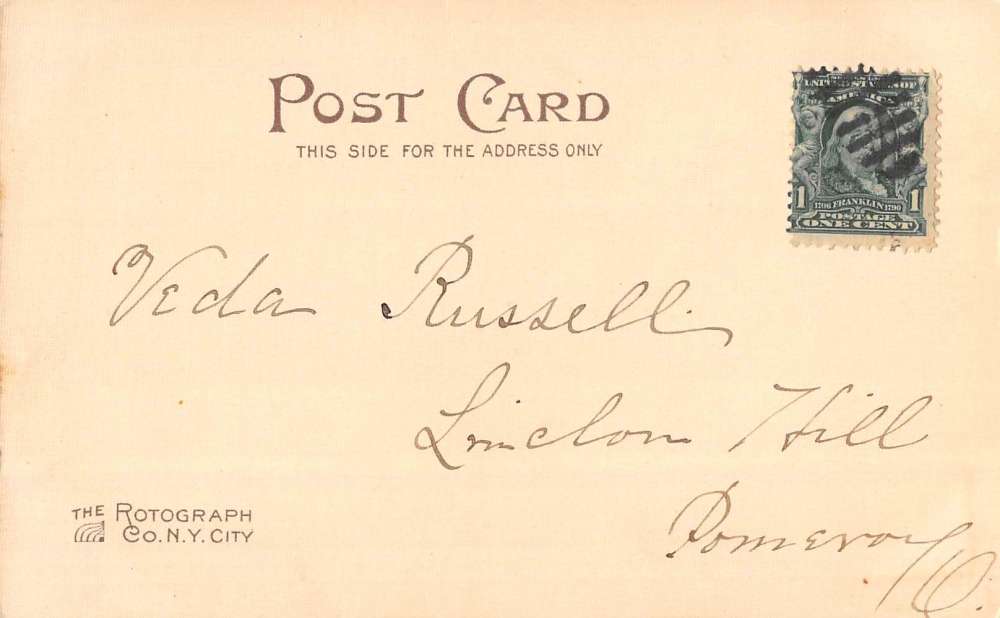 POST CARD
THIS SIDE FOR THE ADDRESS ONLY
UNITED STATES OF
AMERICA
1 1706 FRANKLIN 1790 1
POSTAGE
ONE CENT
Veda Russell
Linclon Hill
Pomeroy O.
THE ROTOGRAPH
CO. N.Y. CITY